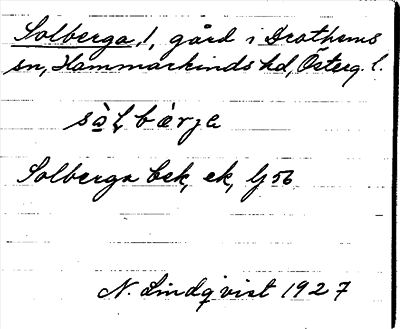 Solberga, !, gård i Drothems
sn, Hammarkinds hd, Österg. l.
sòl bærja
Solberga bek, ek,
N. Lindqvist 1927